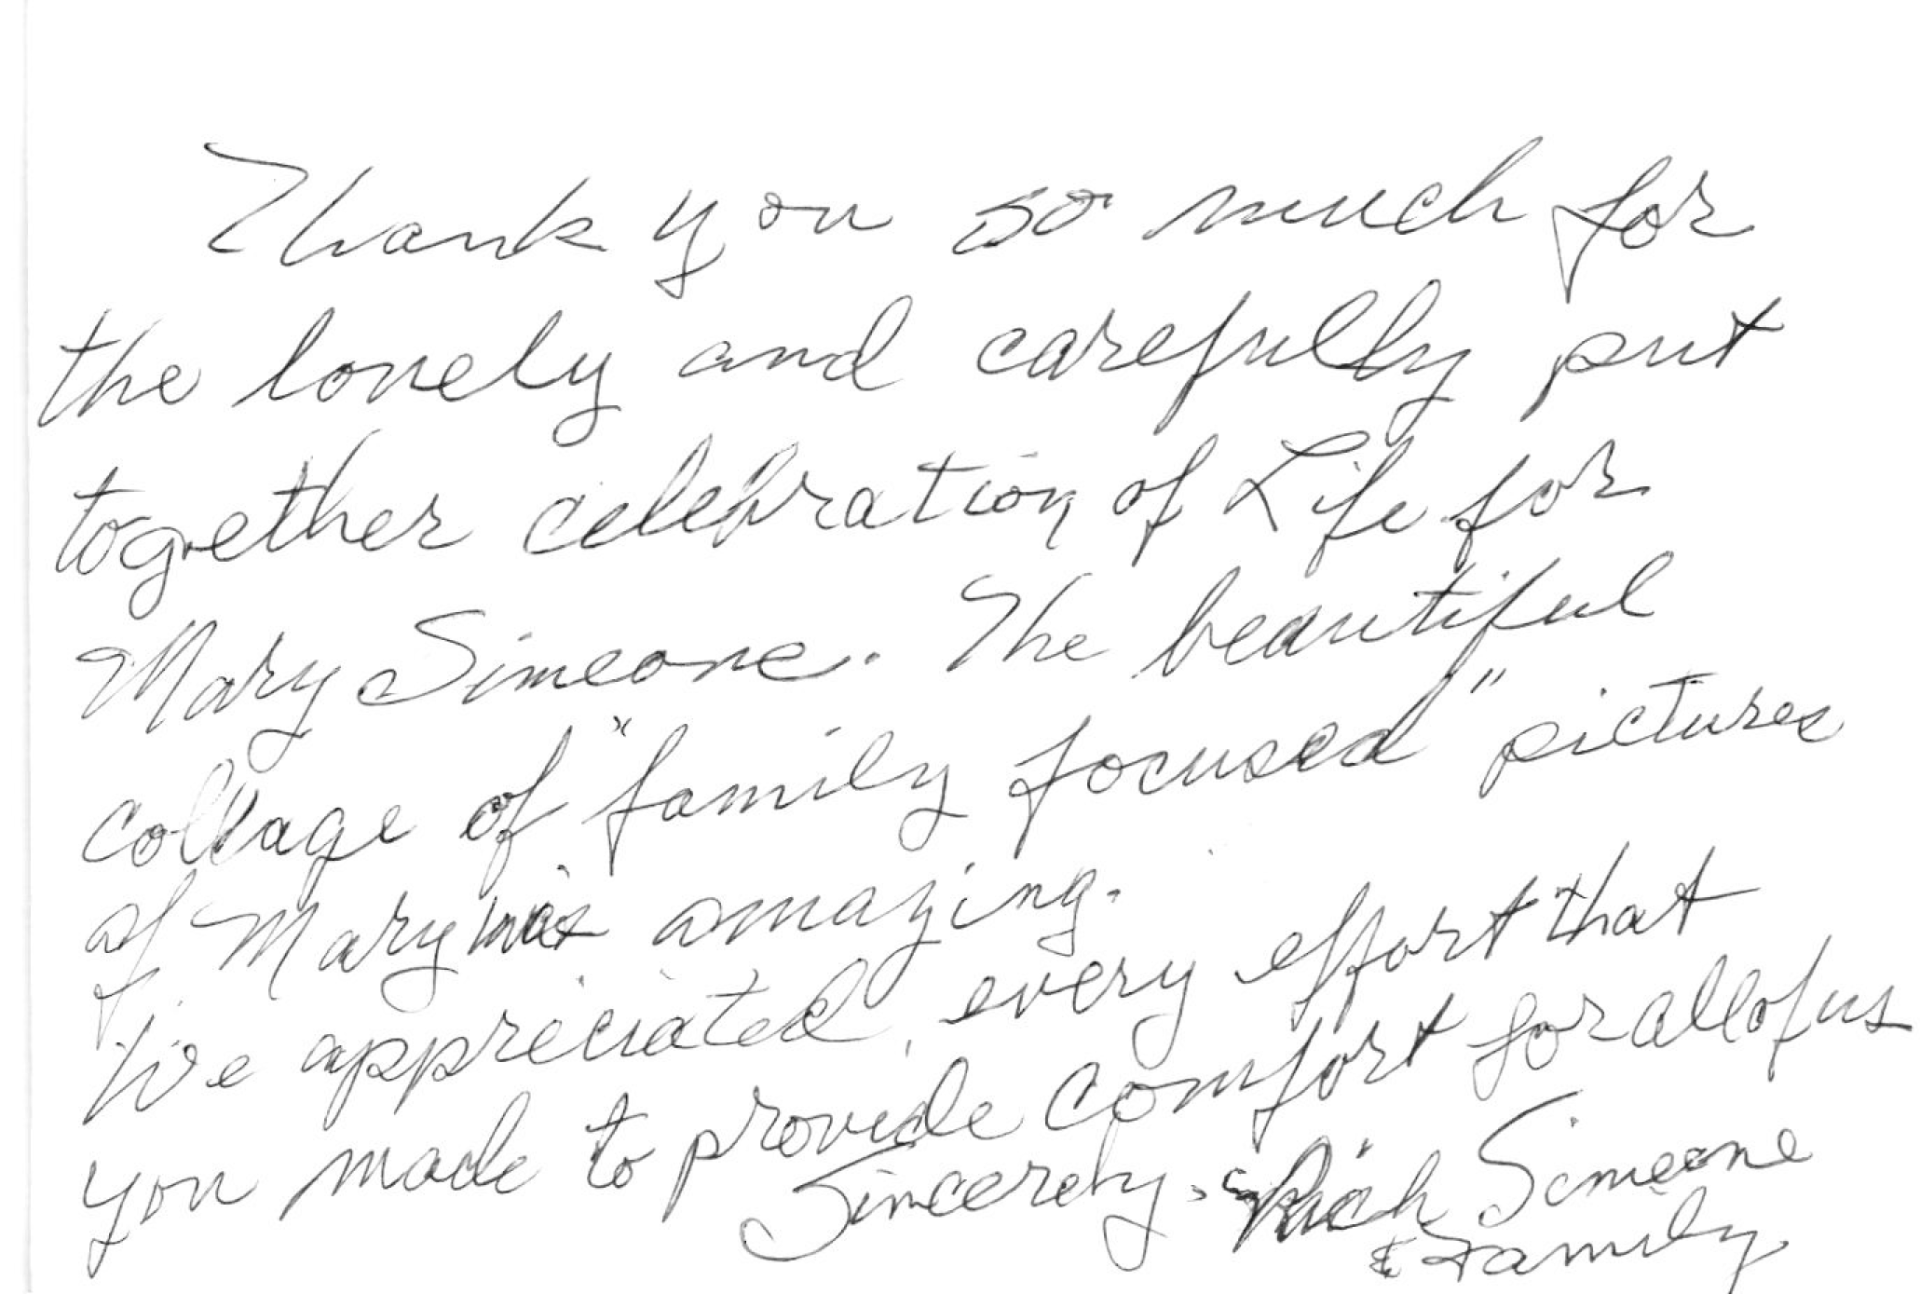 Thank you so much for
the lovely and carefully put
together celebration of Life for
Mary Simeone. The beautiful
collage of "family focused" pictures
of Mary was amazing.
We appreciated every effort that
you made to provide comfort for all of us
Sincerely, Rich Simeone
& Family